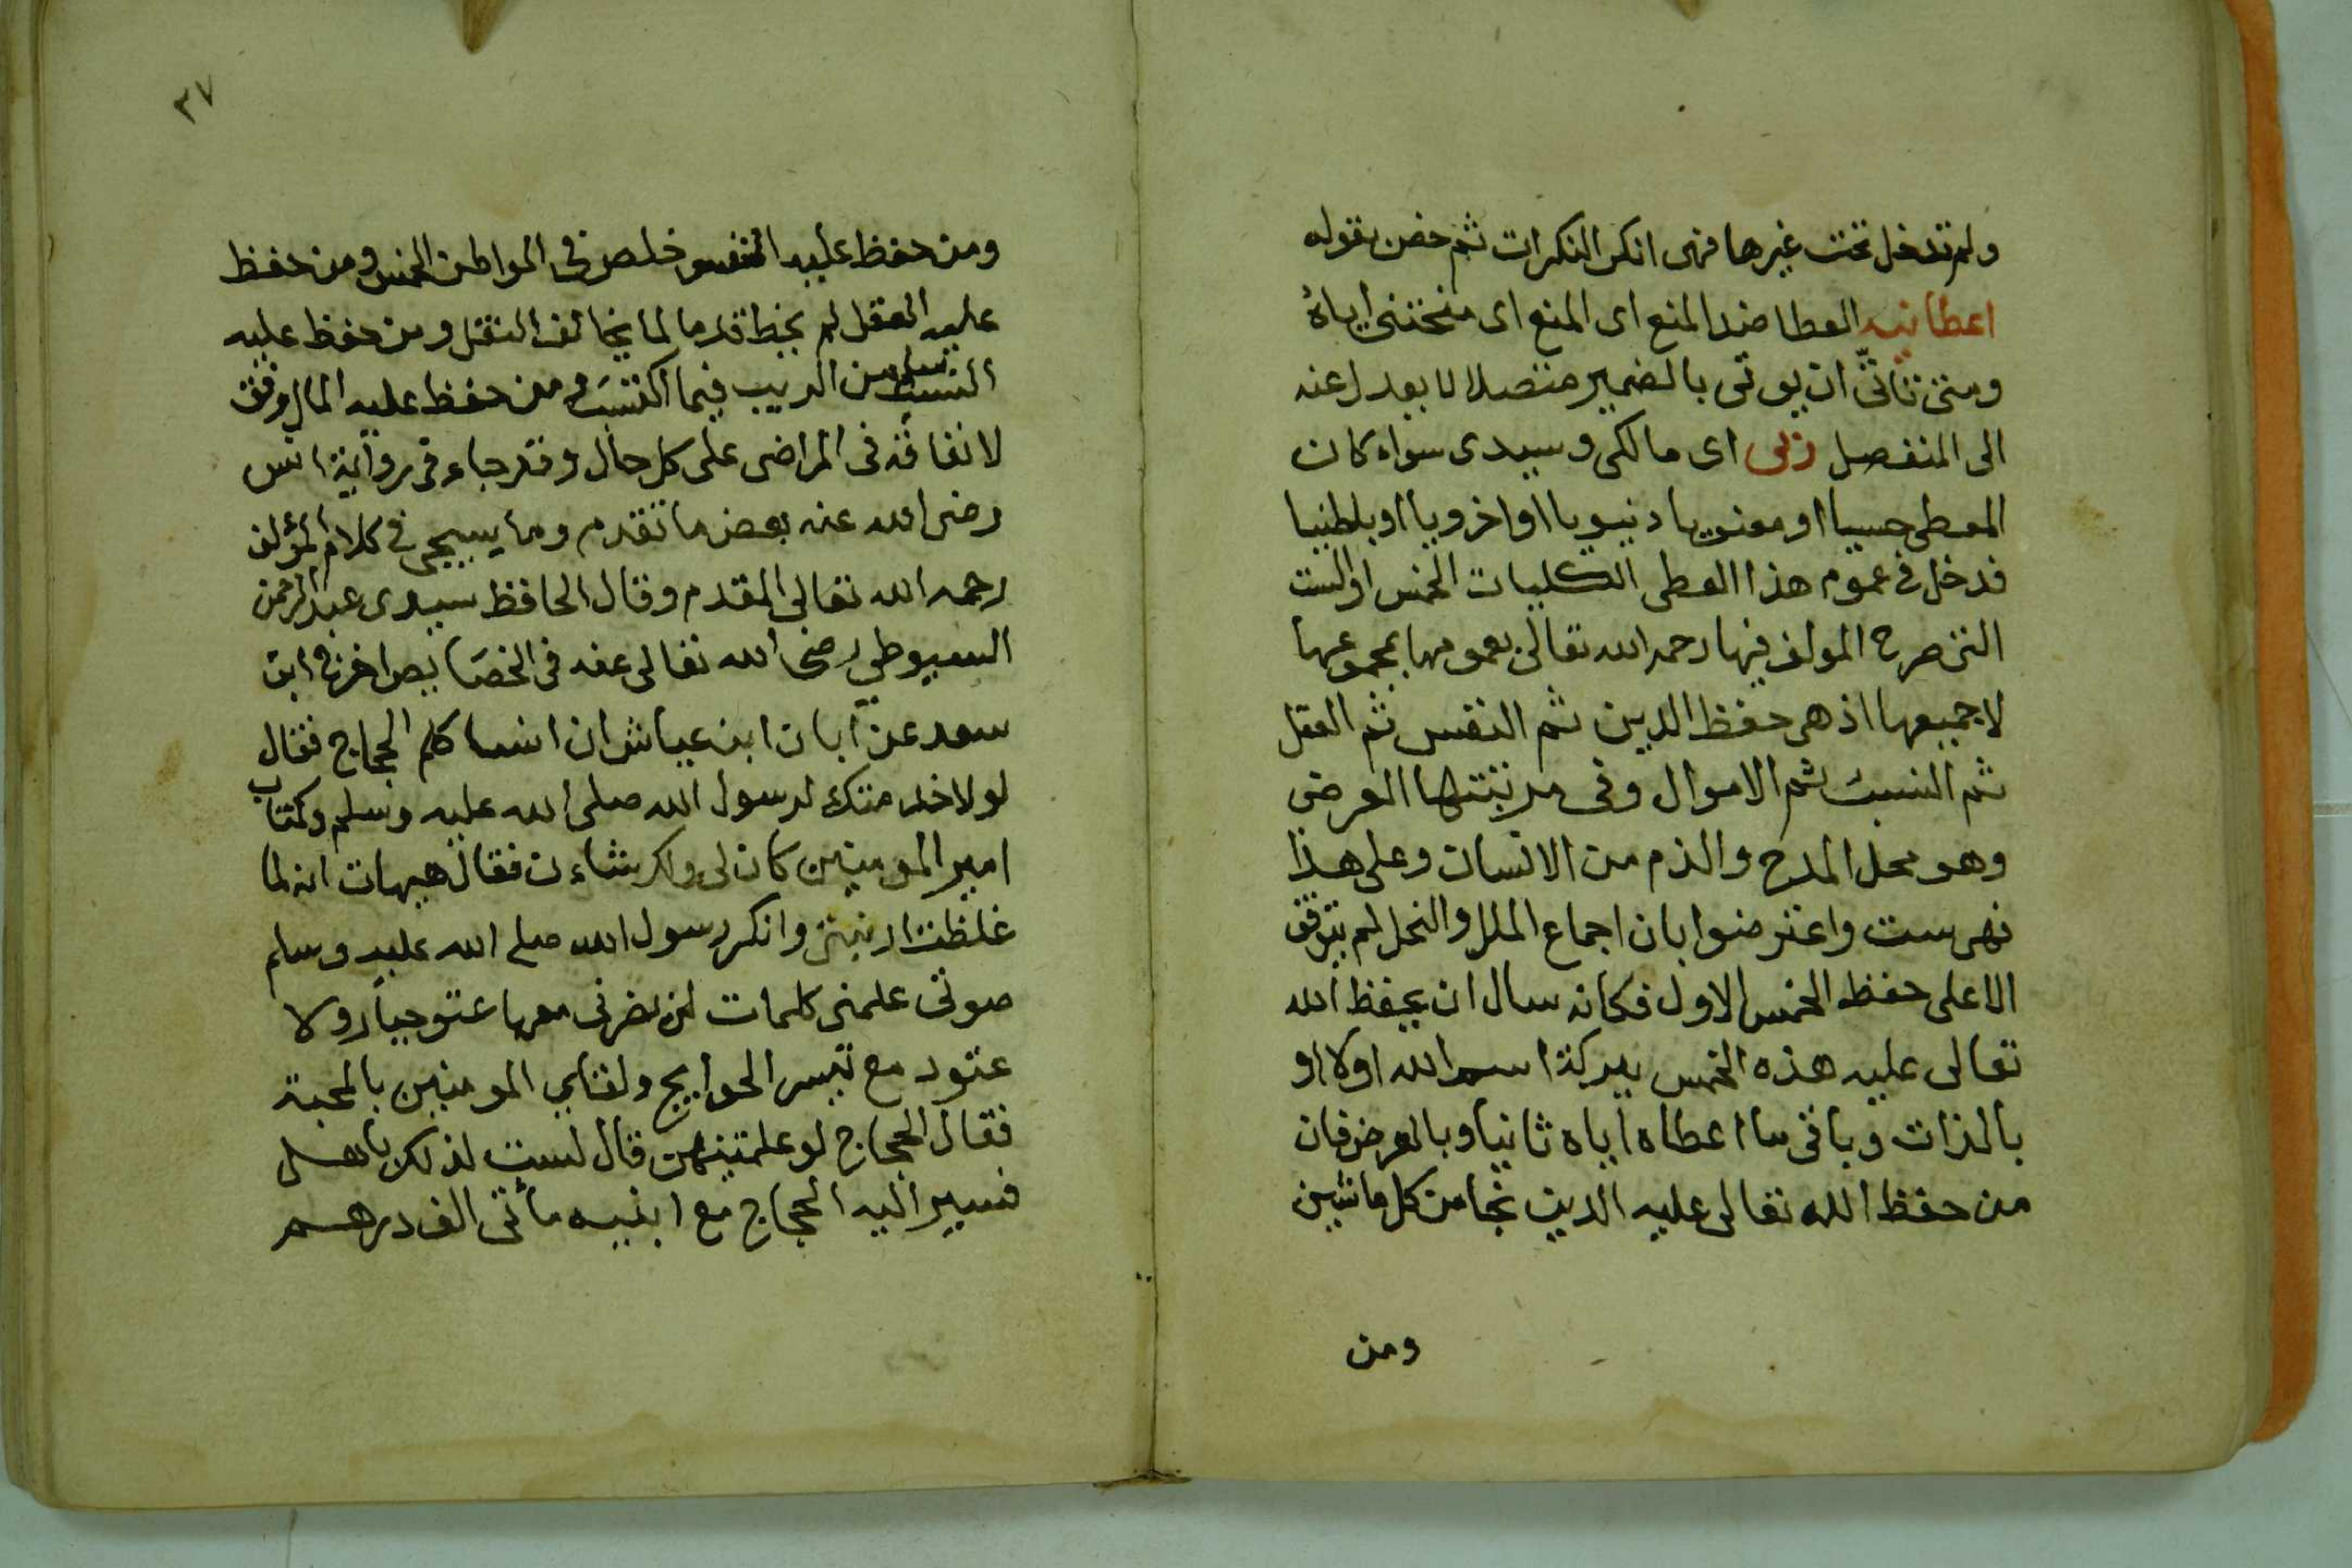 ولم تدخل تحت غيرها فهى انكر النكرات ثم خص بقوله
اعطانيه العطا ضد المنع اى المنع اى منحتنى اياه
ومتى تاتّى ان يوتى بالضمير متصلا لا يعدل عنه
الى المنفصل ربى اى مالكى وسيدى سواء كان
المعطى حسيا او معنويا دنيويا او اخرويا او باطنيا
فدخل فى عموم هذا العطى الكليات الخمس او الست
التى صرح المولف فيها رحمه الله تعالى بعمومها بمجموعها
لا جميعها اذ هى حفظ الدين ثم النفس ثم العقل
ثم النسب ثم الاموال وفى مرتبتها العرض
وهو محل المدح والذم من الانسان وعلى هذا
فهى ست واعترضوا بان اجماع الملل والنحل لم يتوقف
الا على حفظ الخمس الاول فكانه سال ان يحفظ الله
تعالى عليه هذه الخمس ببركة اسم الله اولا او
بالذات وباقى ما اعطاه اياه ثانيا وبالعرض فان
من حفظ الله تعالى عليه الدين نجا من كل ما يشين
ومن
٣٧
ومن حفظ عليه النفس خلص فى المواطن الخمس ومن حفظ
عليه العقل لم يخط قدما لما يخالف النقل ومن حفظ عليه
النسب سلم من الريب فيما اكتسب ومن حفظ عليه المال وفق
لانفاقه فى المراضى على كل حال وقد جاء فى رواية انس
رضى الله عنه بعض ما تقدم وما سيجى فى كلام المؤلف
رحمه الله تعالى المقدم وقال الحافظ سيدى عبد الرحمن
السيوطي رضى الله تعالى عنه فى الخصايص اخرج ابن
سعد عن ابان ابن عياش ان انسا كلم الحجاج فقال
لولا خدمتك لرسول الله صلى الله عليه وسلم وكتاب
امير المومنين كان لى ولك شاءن فقال هيهات انه لما
غلظت ارنبتى وانكر رسول الله صلى الله عليه وسلم
صوتى علمنى كلمات لن يضرنى معها عتو جبار ولا
عنود مع تيسر الحوايج ولقاي المومنين بالمحبة
فقال الحجاج لو علمتنيهن قال لست لذلك باهل
فسير اليه الحجاج مع ابنيه مأتى الف درهم